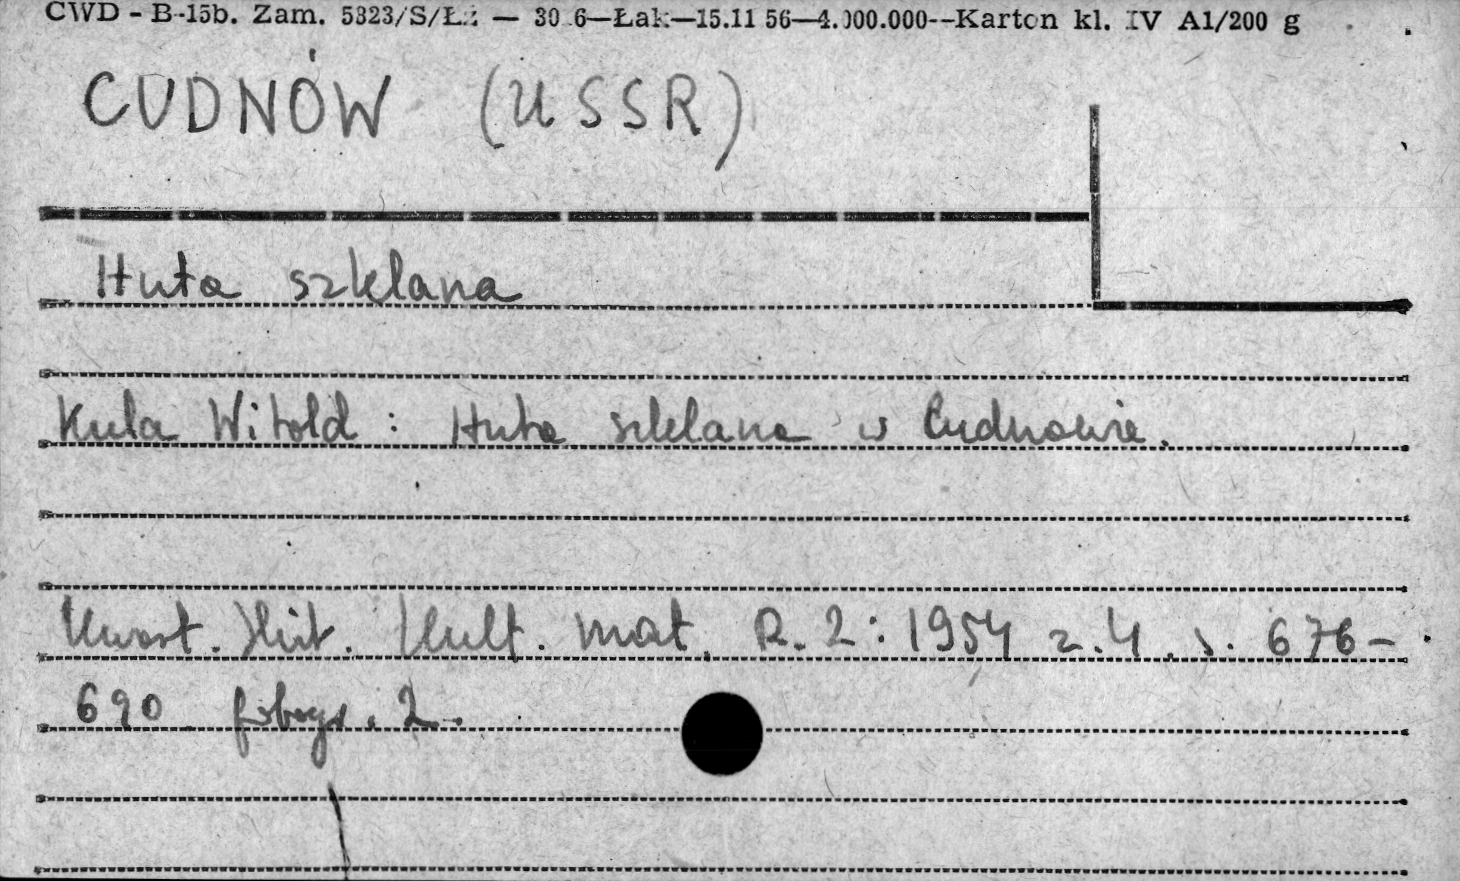 CWD - B-15b. Zam. 5323/S/Łż — 30.6—Łak—15.11 56—4.000.000--Karton kl. IV A1/200 g
CUDNÓW (USSR)
Huta szklana
Kula Witold : Huta szklana w Cudnowie.
Kwart. Hist. Kult. mat. R. 2 : 1954 z. 4. s. 676-
690 2.